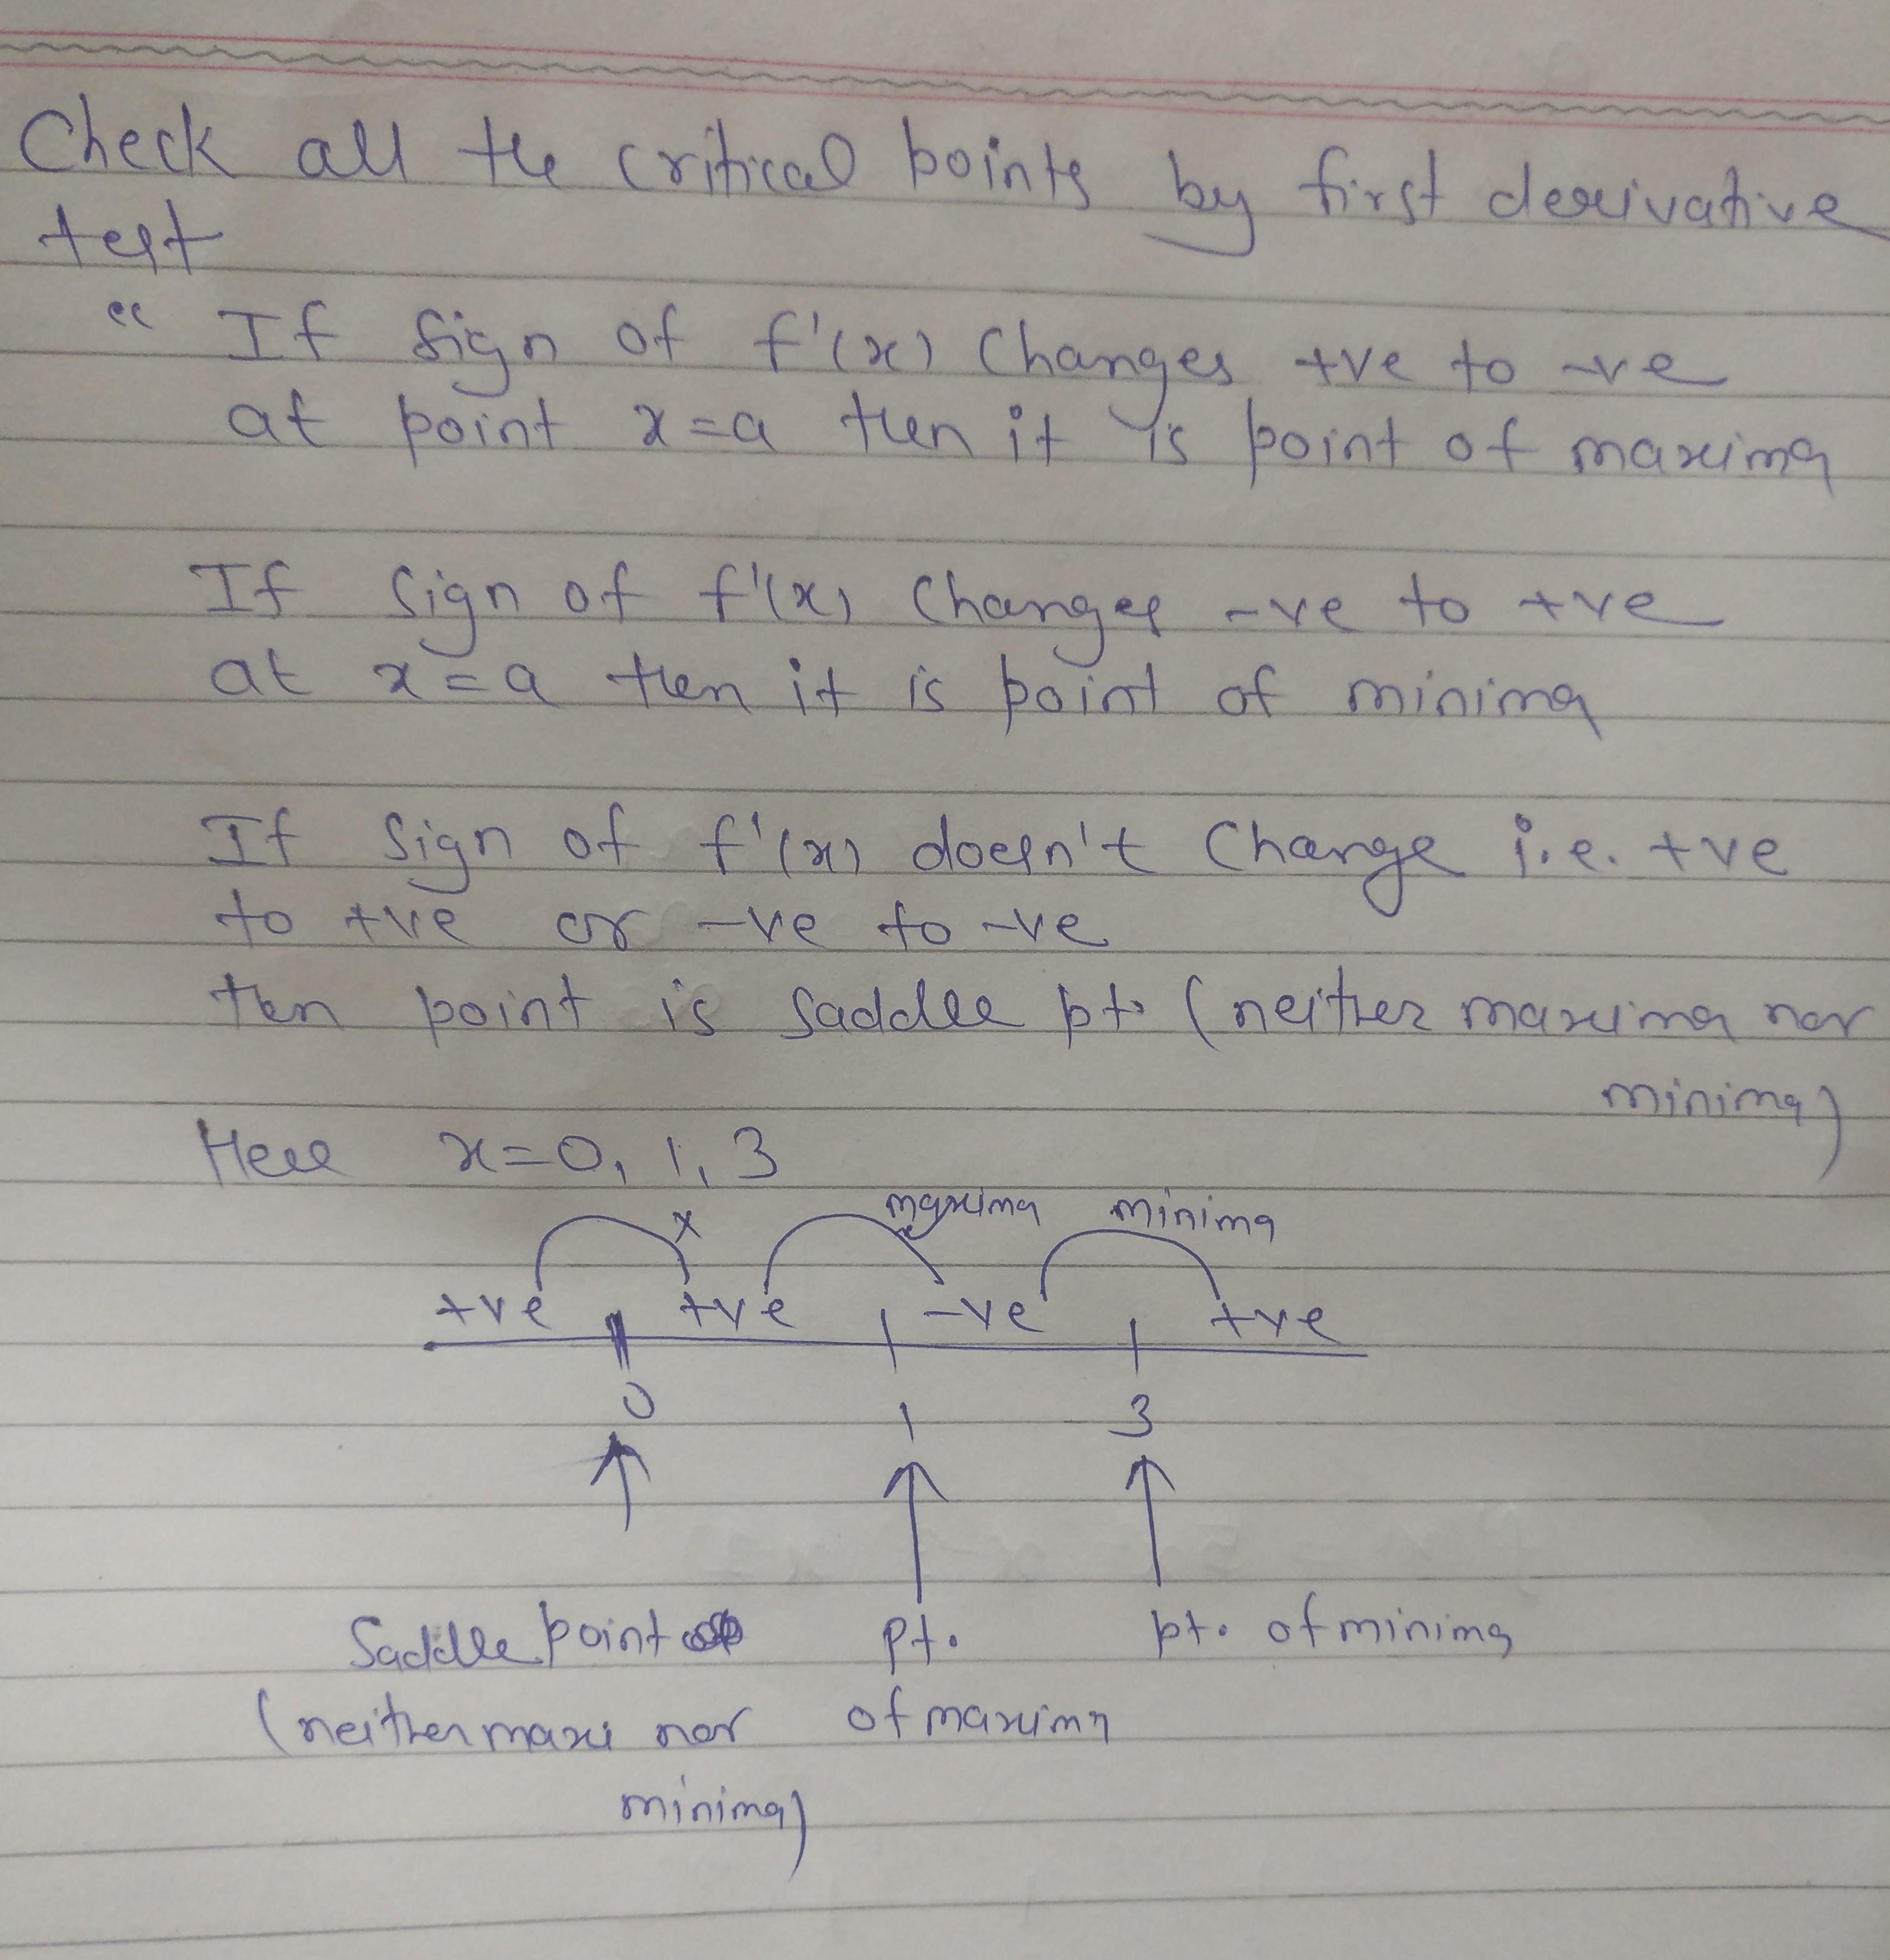 Check all the critical points by first derivative
test
“ If sign of f'(x) changes +ve to -ve
at point x=a then it is point of maxima
If sign of f'(x) changes -ve to +ve
at x=a then it is point of minima
If sign of f'(x) doesn't change i.e. +ve
to +ve or -ve to -ve
then point is saddle pt. (neither maxima nor
minima)
Here x=0, 1, 3
x maxima minima
+ve +ve -ve +ve
0 1 3
Saddle point pt. pt. of minima
(neither maxi nor of maxima
minima)